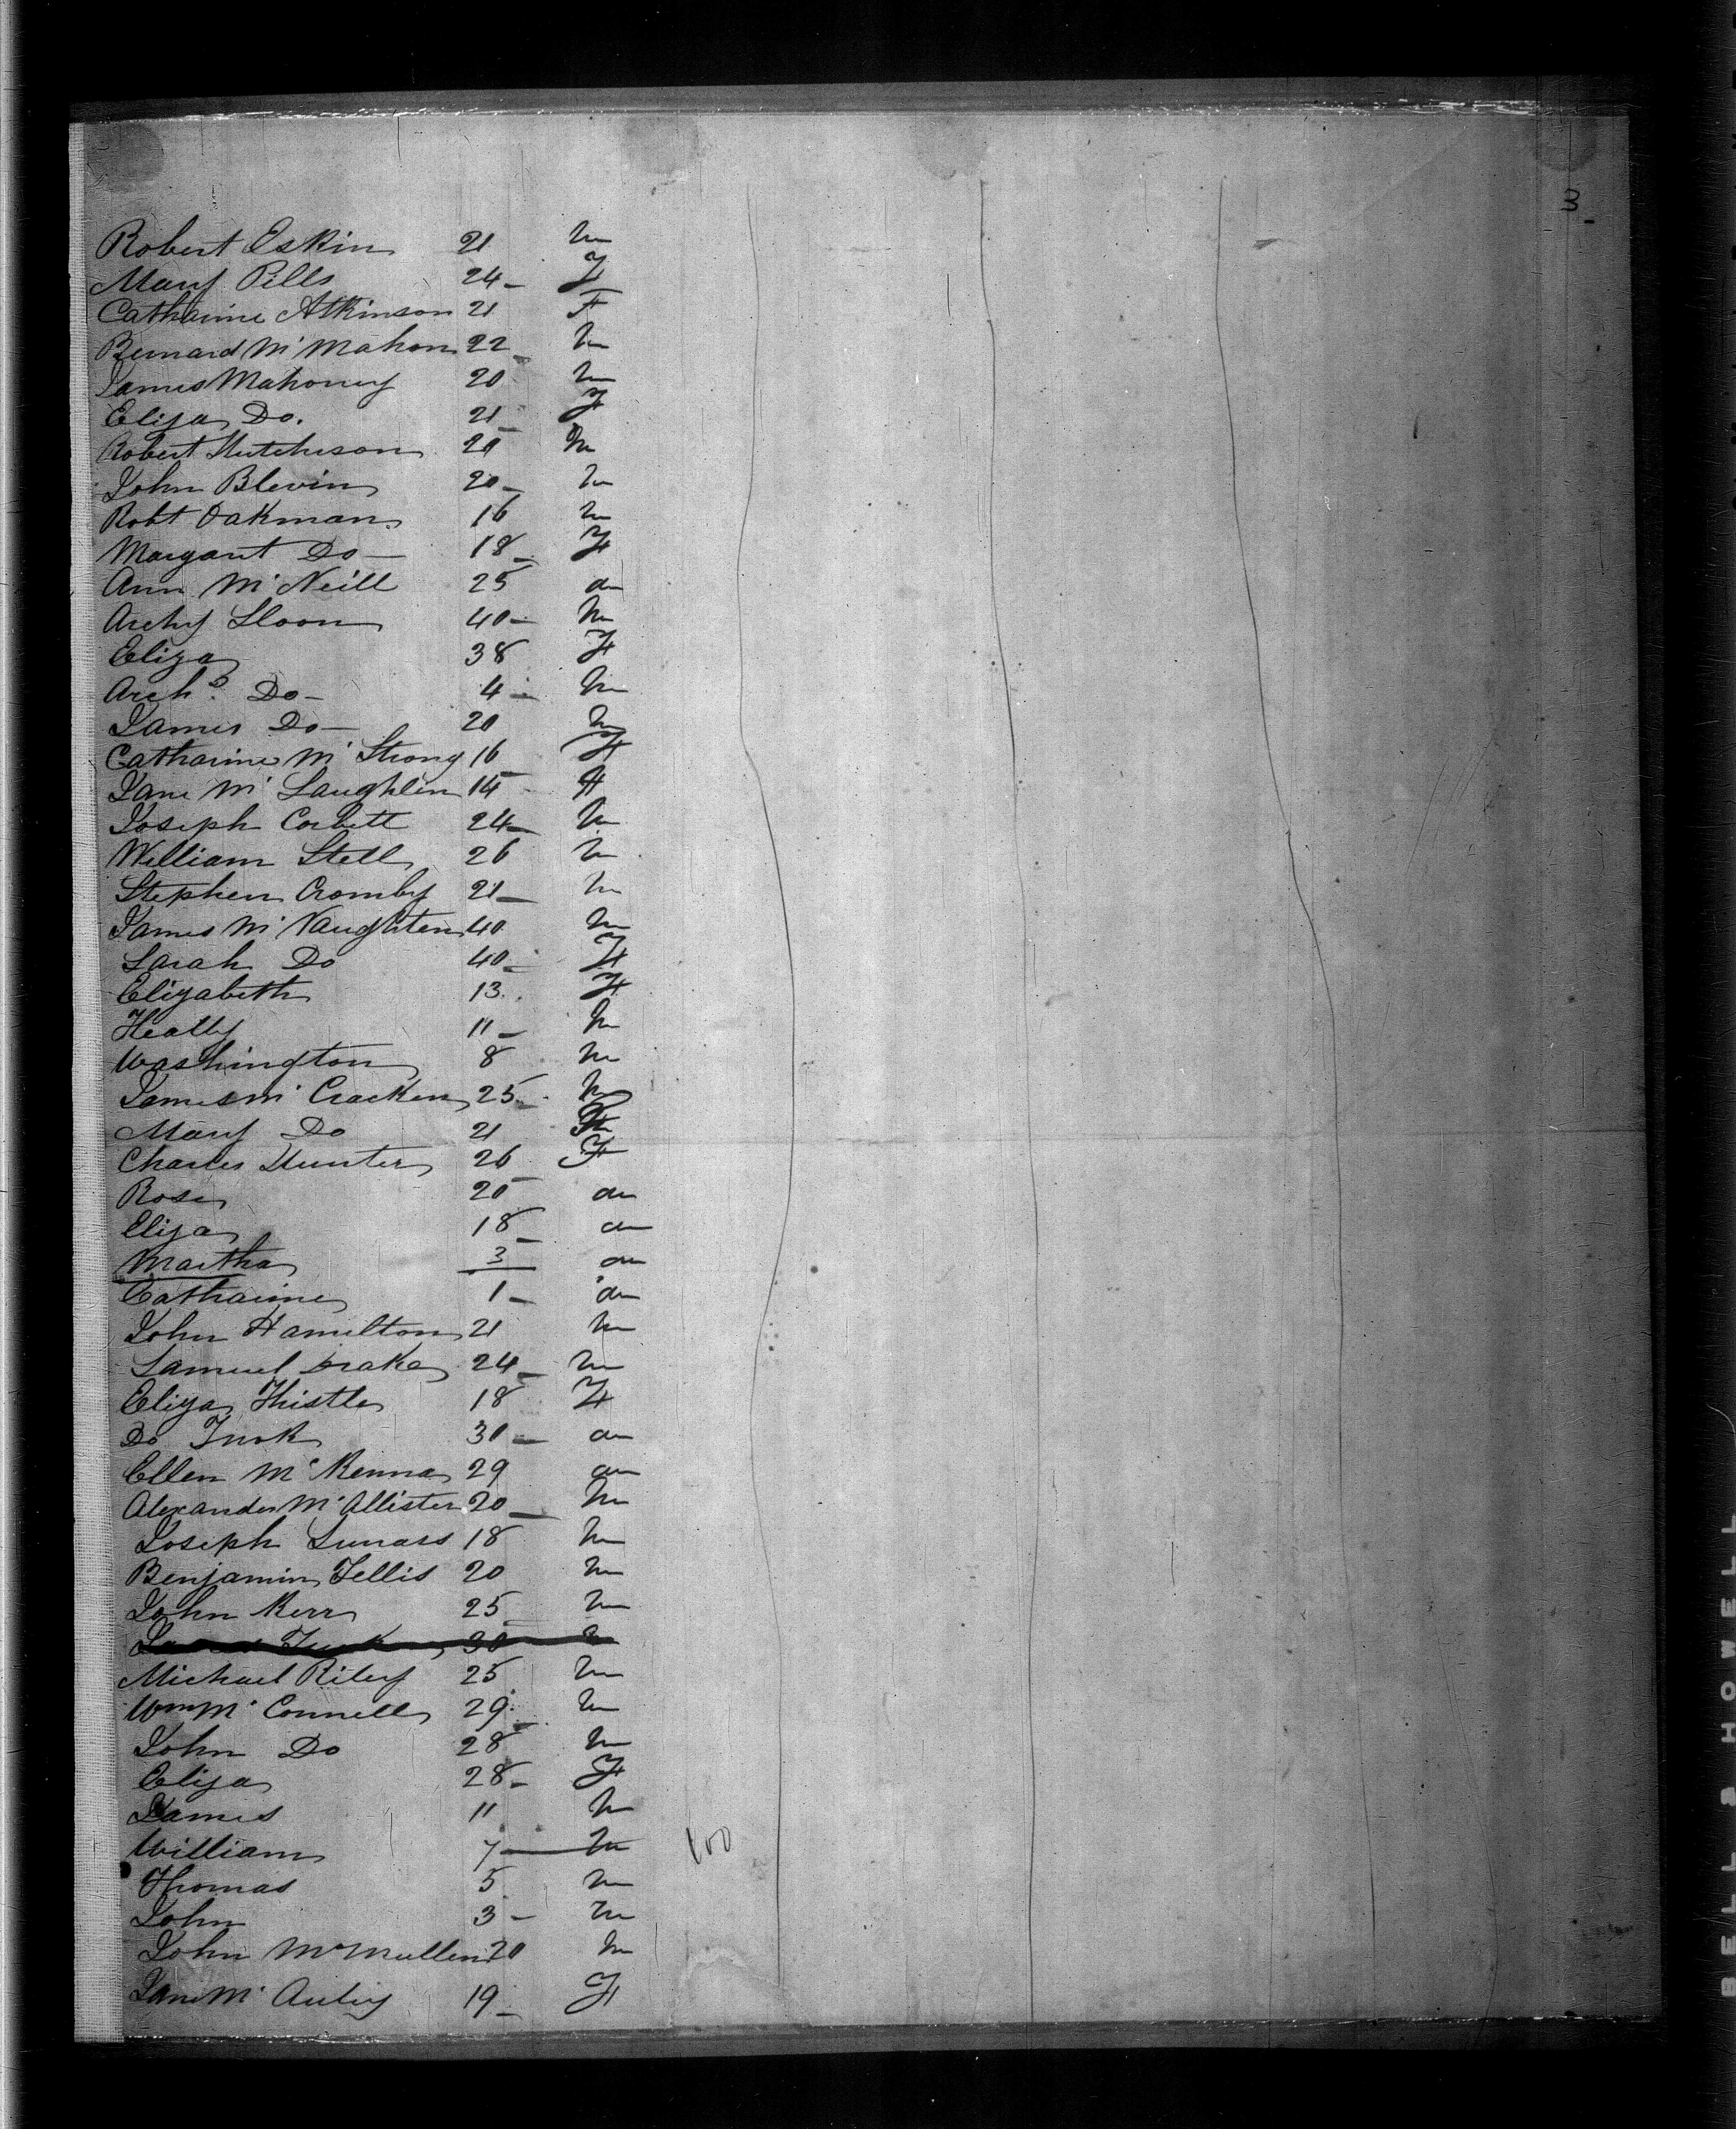 3
Robert Eskin 21 m
Mary Pills 24 F
Catharine Atkinson 21 F
Bernard Mc Mahon 22 m
James Mahoney 20 m
Eliza Do. 21 F
Robert Hutcheson 20 m
John Blevin 20 m
Robt Oakman 16 m
Margaret Do 18 F
Ann Mc Neill 25 do
Archy Sloan 40 m
Eliza 38 F
Archd. Do 4 m
James Do 20 m
Catharine Mc Strong 16 F
Jane Mc Laughlin 14 F
Joseph Corbett 24 m
William Stell 26 m
Stephen Cromby 21 m
James Mc Naughten 40 m
Sarah Do 40 F
Elizabeth 13 F
Heatly 11 m
Washington 8 m
James Mc Cracken 25 m
Mary Do 21
Charles Hunter 26 F
Rose 20 do
Eliza 18 do
Martha 3 do
Catharine 1 do
John Hamilton 21 m
Samuel Drake 24 m
Eliza Thistle 18 F
Do Turk 30 do
Ellen Mc Kenna 29 do
Alexander Mc Allister 20 m
Joseph 18 m
Benjamin Tellis 20 m
John Kerr 25 m
30 m
Michael Riley 25 m
Wm Mc Connell 29 m
John Do 28 m
Eliza 28 F
James 11 m
William 7 m 100
Thomas 5 m
John 3 m
John McMullen 20 m
Jane Mc Auley 19 F
BELL & HOWELL